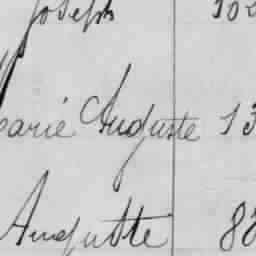 Joseph 102
Marie Auguste 13
Auguste 88